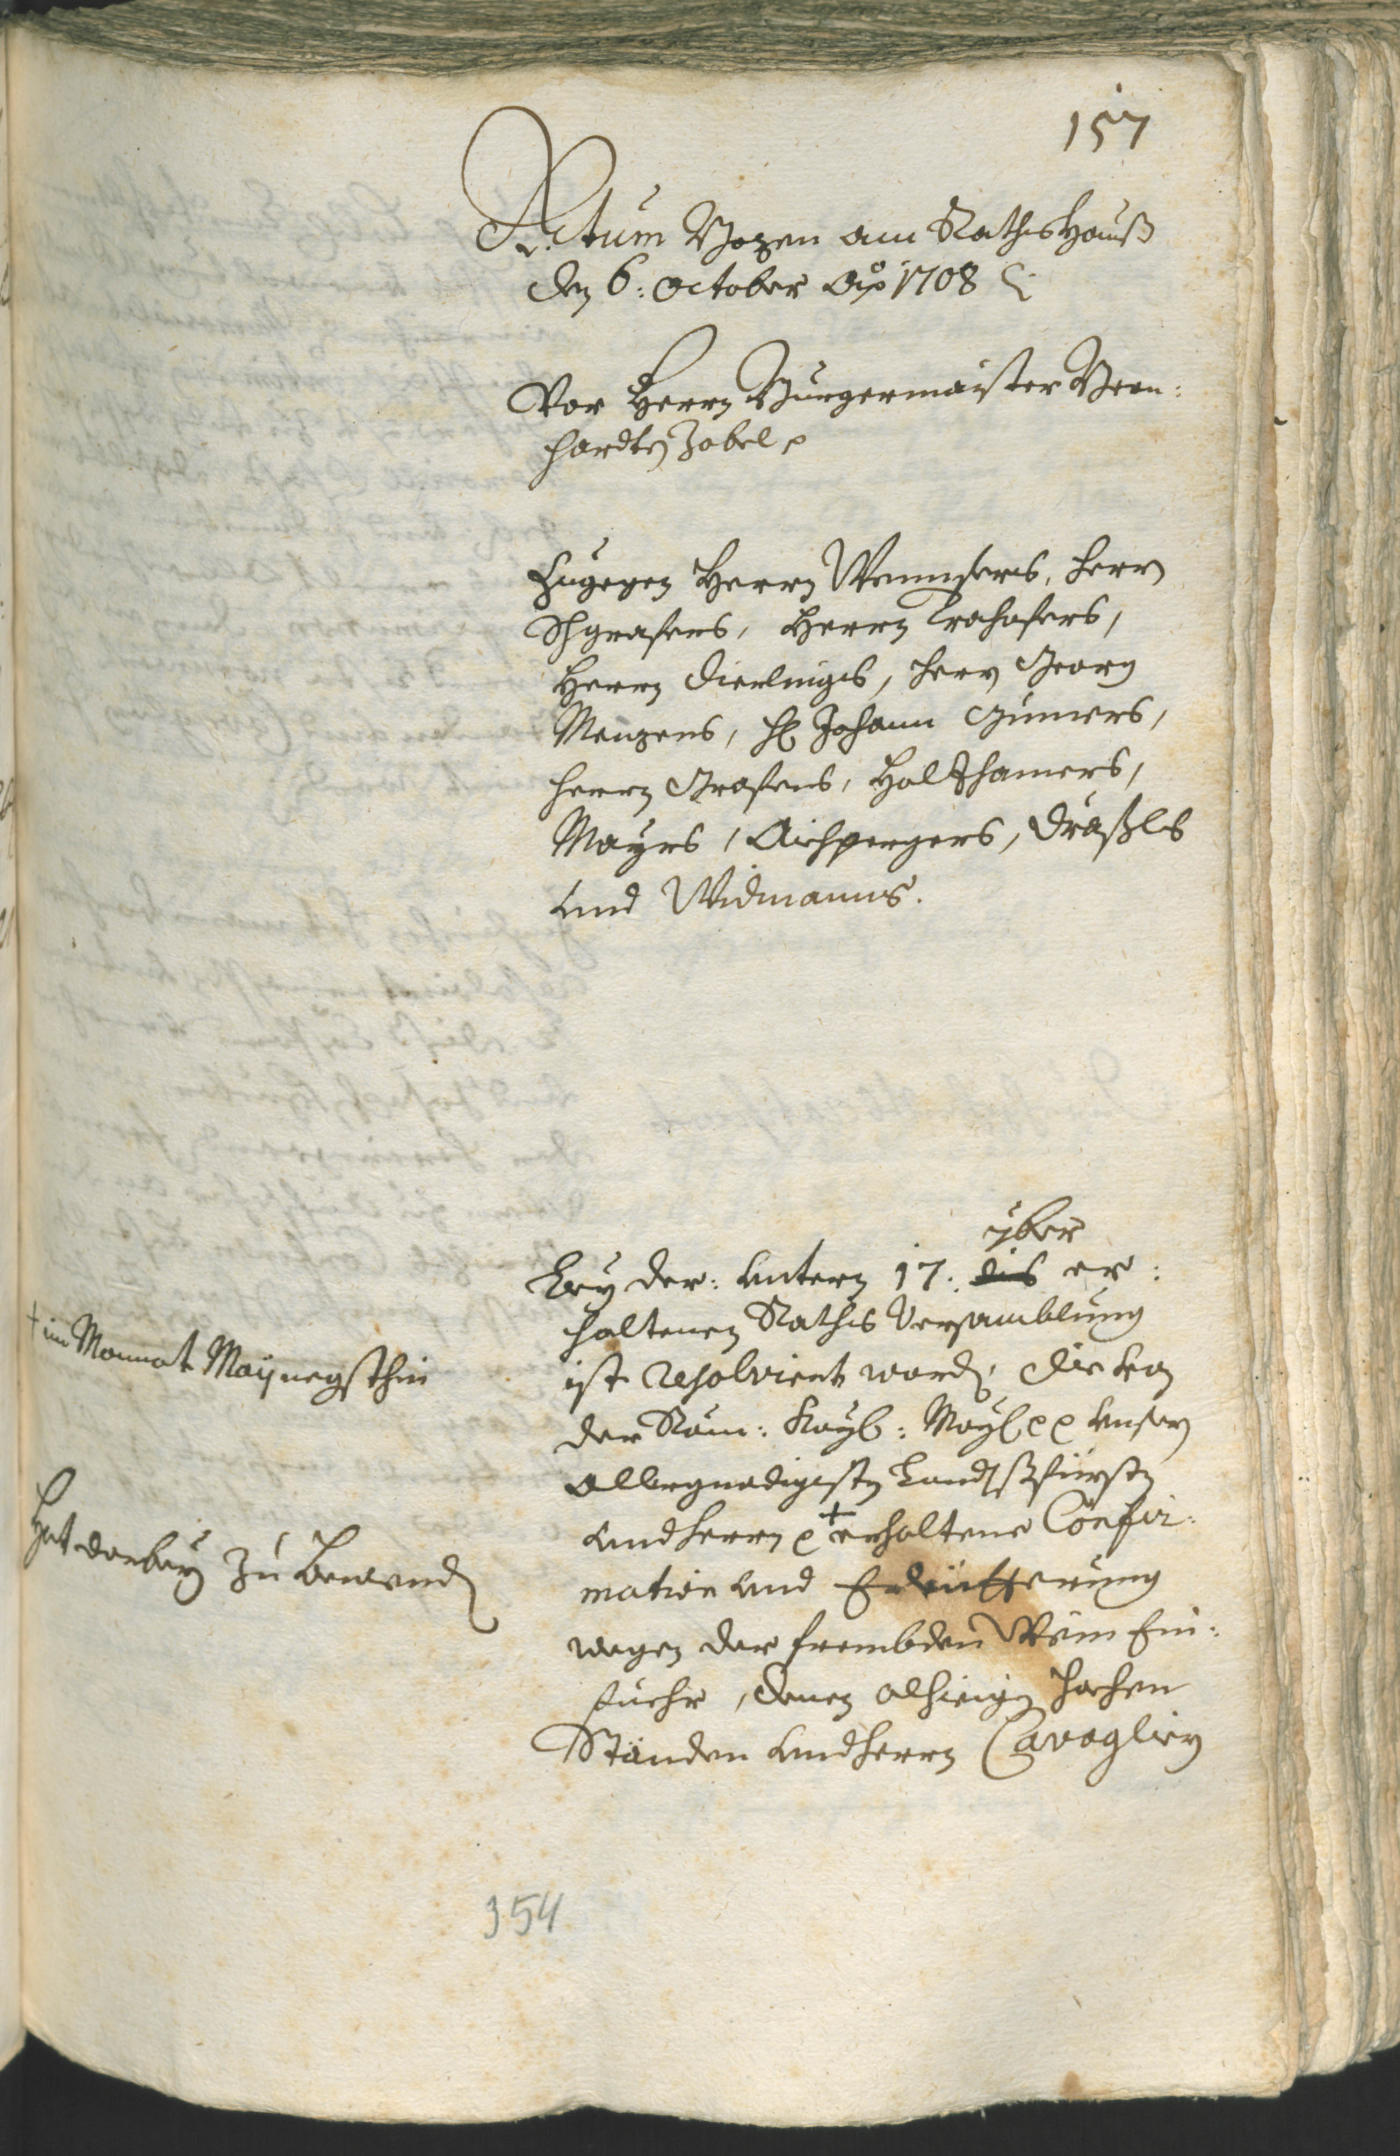 157
Actum Bozen am Raths Hauß
den 6: October Ao 1708
Vor Herrn Burgermaister Bern:
hardten Zobel p
Zugegen Herrn Wenusers, Herrn
Schgrafers, Herrn Trahofers,
Herrn Dierlings, Herrn Georg
Menzens, H: Johann Gumers,
Herrn Grafens, Holzhamers,
Mayrs, Aichpergers, Dräxls
und Widmanns.
yber
Bey der: untern 17. dis er:
haltenen Raths Versamblung
ist resolviert worden, die von
der Röm: Kayl: Mayl pp unsern
allergnedigisten Landtsfürsten
und Herrn p + erhaltene Confir:
mation und Erleütterung
wegen der frembden Wein Ein:
fuehr, denen alhieigen hochen
Ständen und Herrn Cavaglien
+ im Monnat Maij negsthin
Hat darbey zu bewenden
354